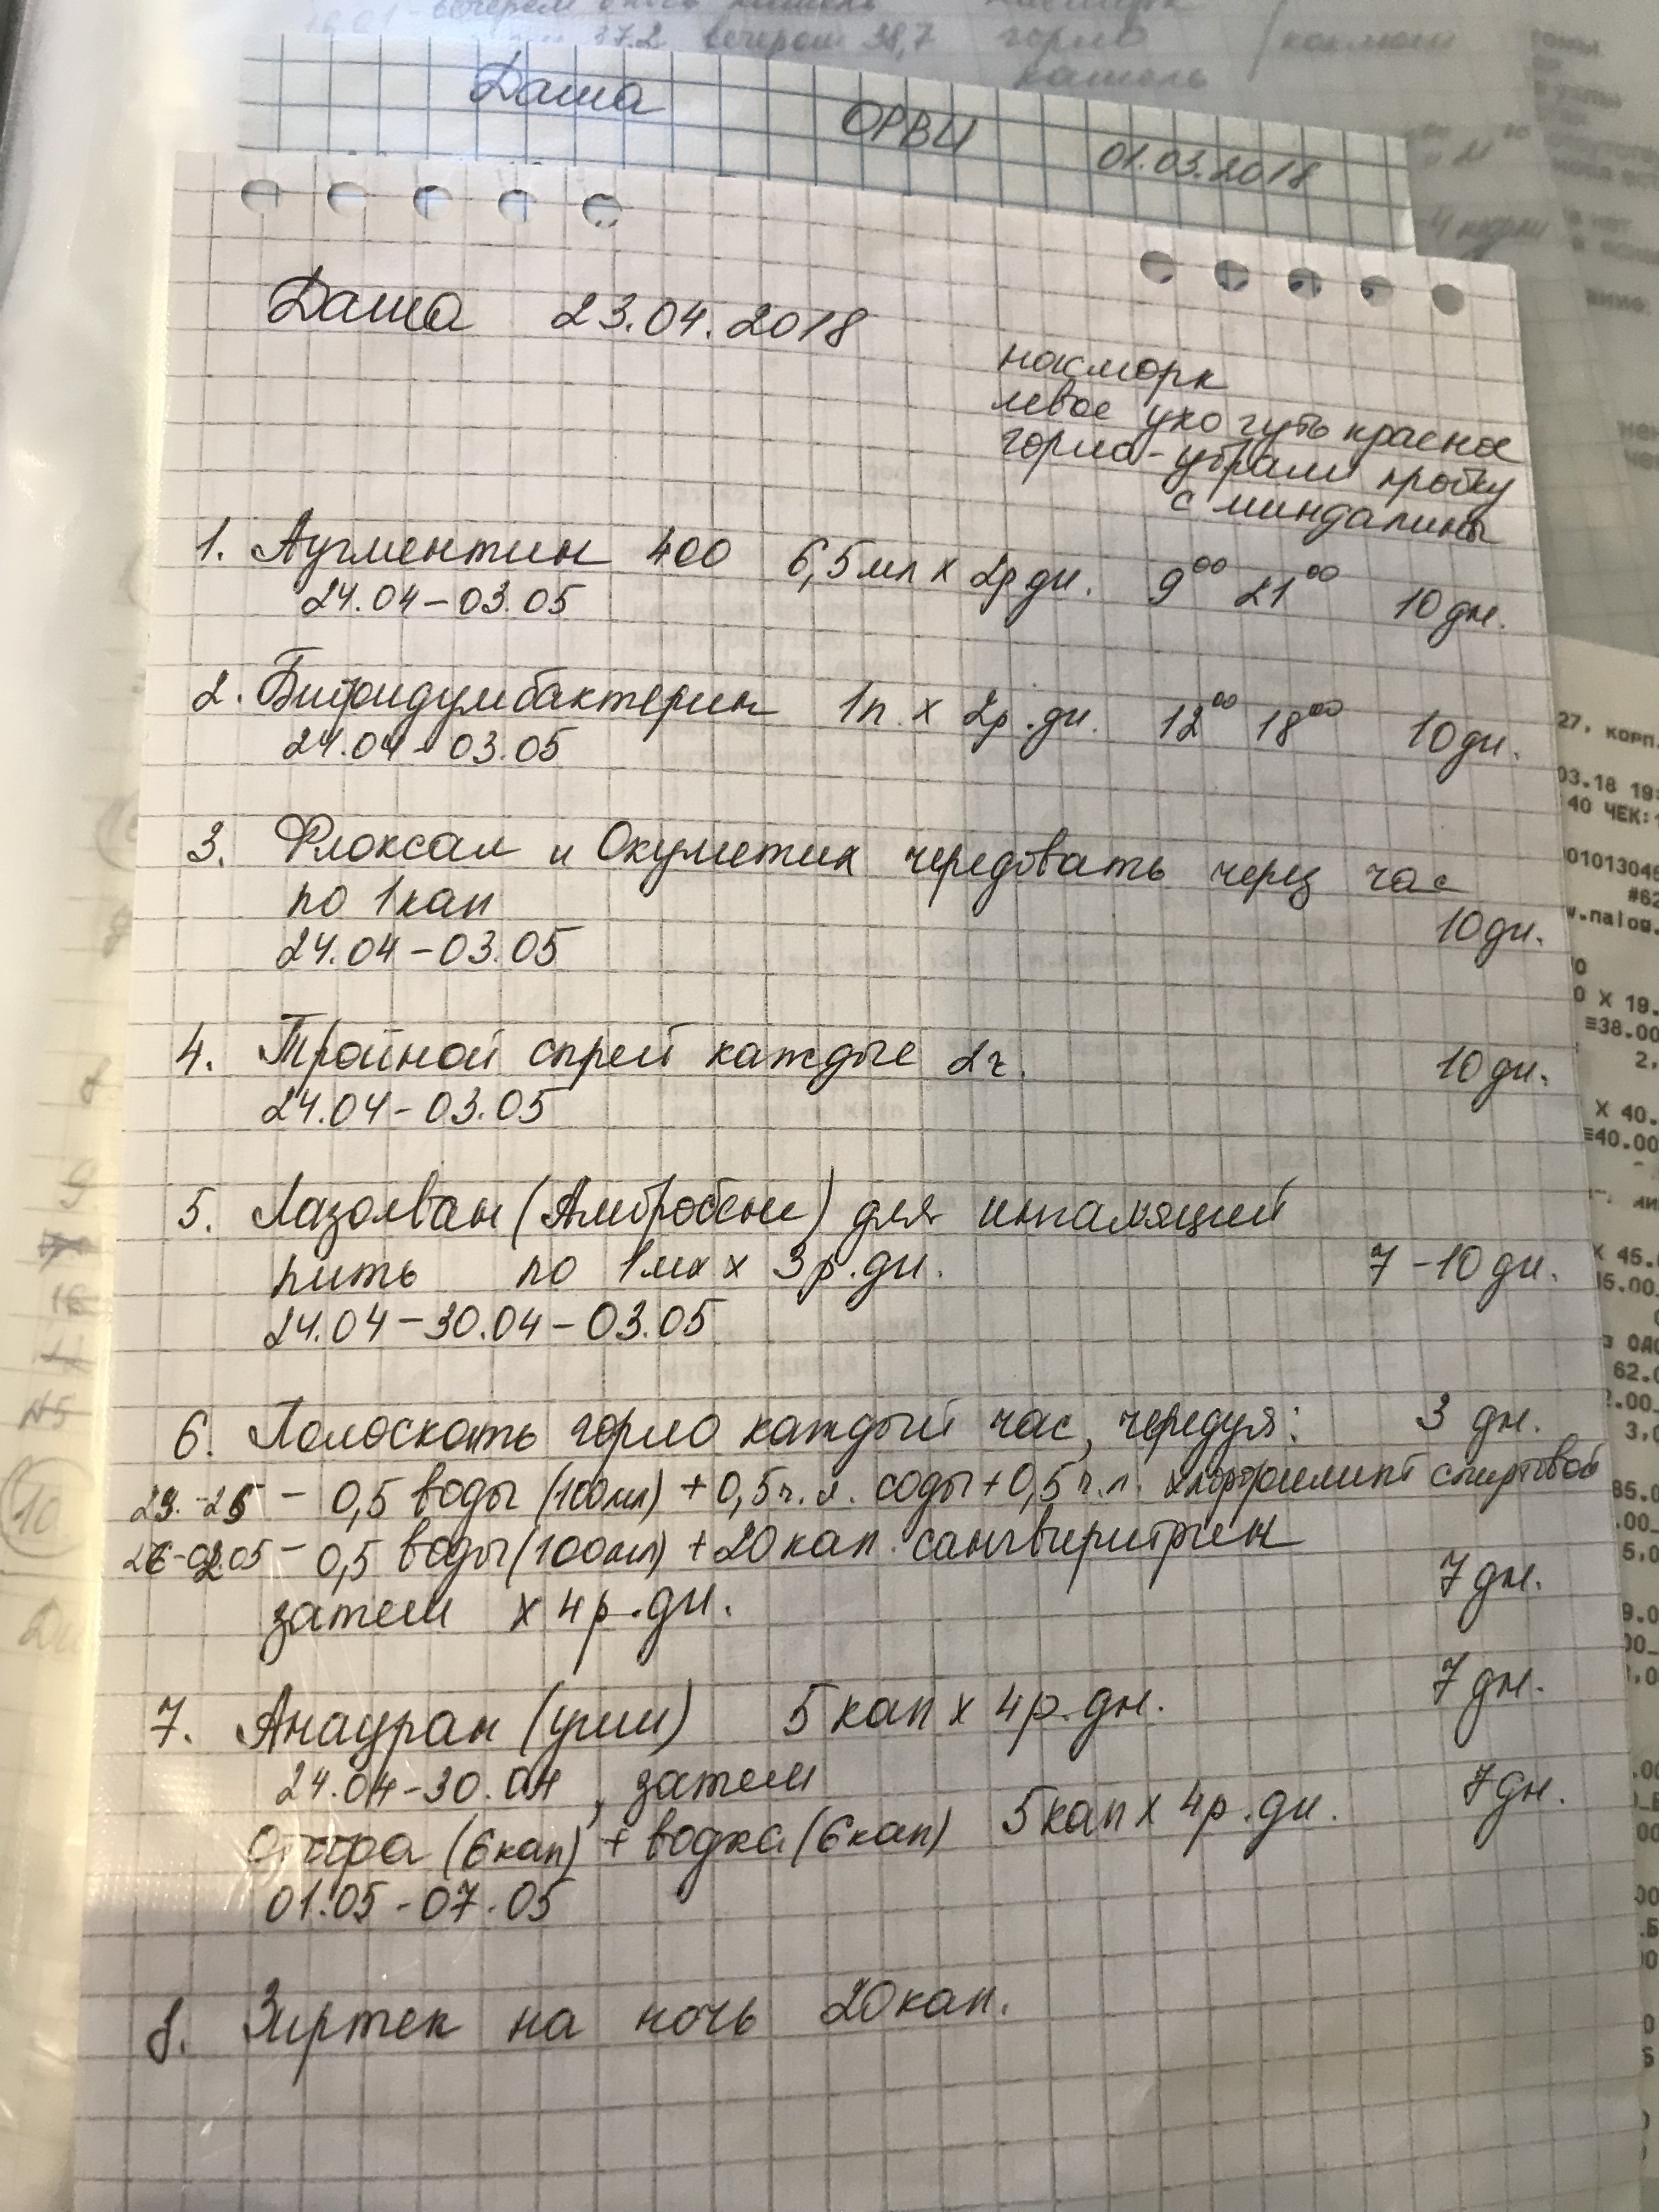 вечером
37.2 вечером 38,7 горло
кашель
Даша ОРВИ 01.03.2018
Даша 23.04.2018
насморк
левое ухо чуть красное
горло - убрали пробку
с миндалины
1. Аугментин 400 6,5 мл х 2р дн. 9⁰⁰ 21⁰⁰ 10 дн.
24.04 – 03.05
2. Бифидумбактерин 1п. х 2р. дн. 12⁰⁰ 18⁰⁰ 10 дн.
24.04 – 03.05
3. Флоксал и Окуметил чередовать через час
по 1 кап
10 дн.
24.04 – 03.05
4. Тройной спрей каждые 2 ч. 10 дн.
24.04 – 03.05
5. Лазолван (Амбробене) для ингаляций
пить по 1 мл х 3р. дн. 7 – 10 дн.
24.04 – 30.04 – 03.05
6. Полоскать горло каждый час, чередуя: 3 дн.
23. - 25 – 0,5 воды (100мл) + 0,5 ч. л. соды + 0,5 ч. л. хлорфиллипт спиртовой
26 - 02.05 – 0,5 воды (100мл) + 20 кап. сангвиритрин
затем х 4 р. дн. 7 дн.
7. Анауран (уши) 5 кап х 4 р. дн. 7 дн.
24.04 - 30.04, затем
(6 кап) + водка (6 кап) 5 кап х 4 р. дн. 7 дн.
01.05 - 07.05
8. Зиртек на ночь 20 кап.
27, КОРП.
03.18 19:
40 ЧЕК:
#62
w.nalog.
0 X 19.
=38.00
X 40.
=40.00
X 45.
85.0
10